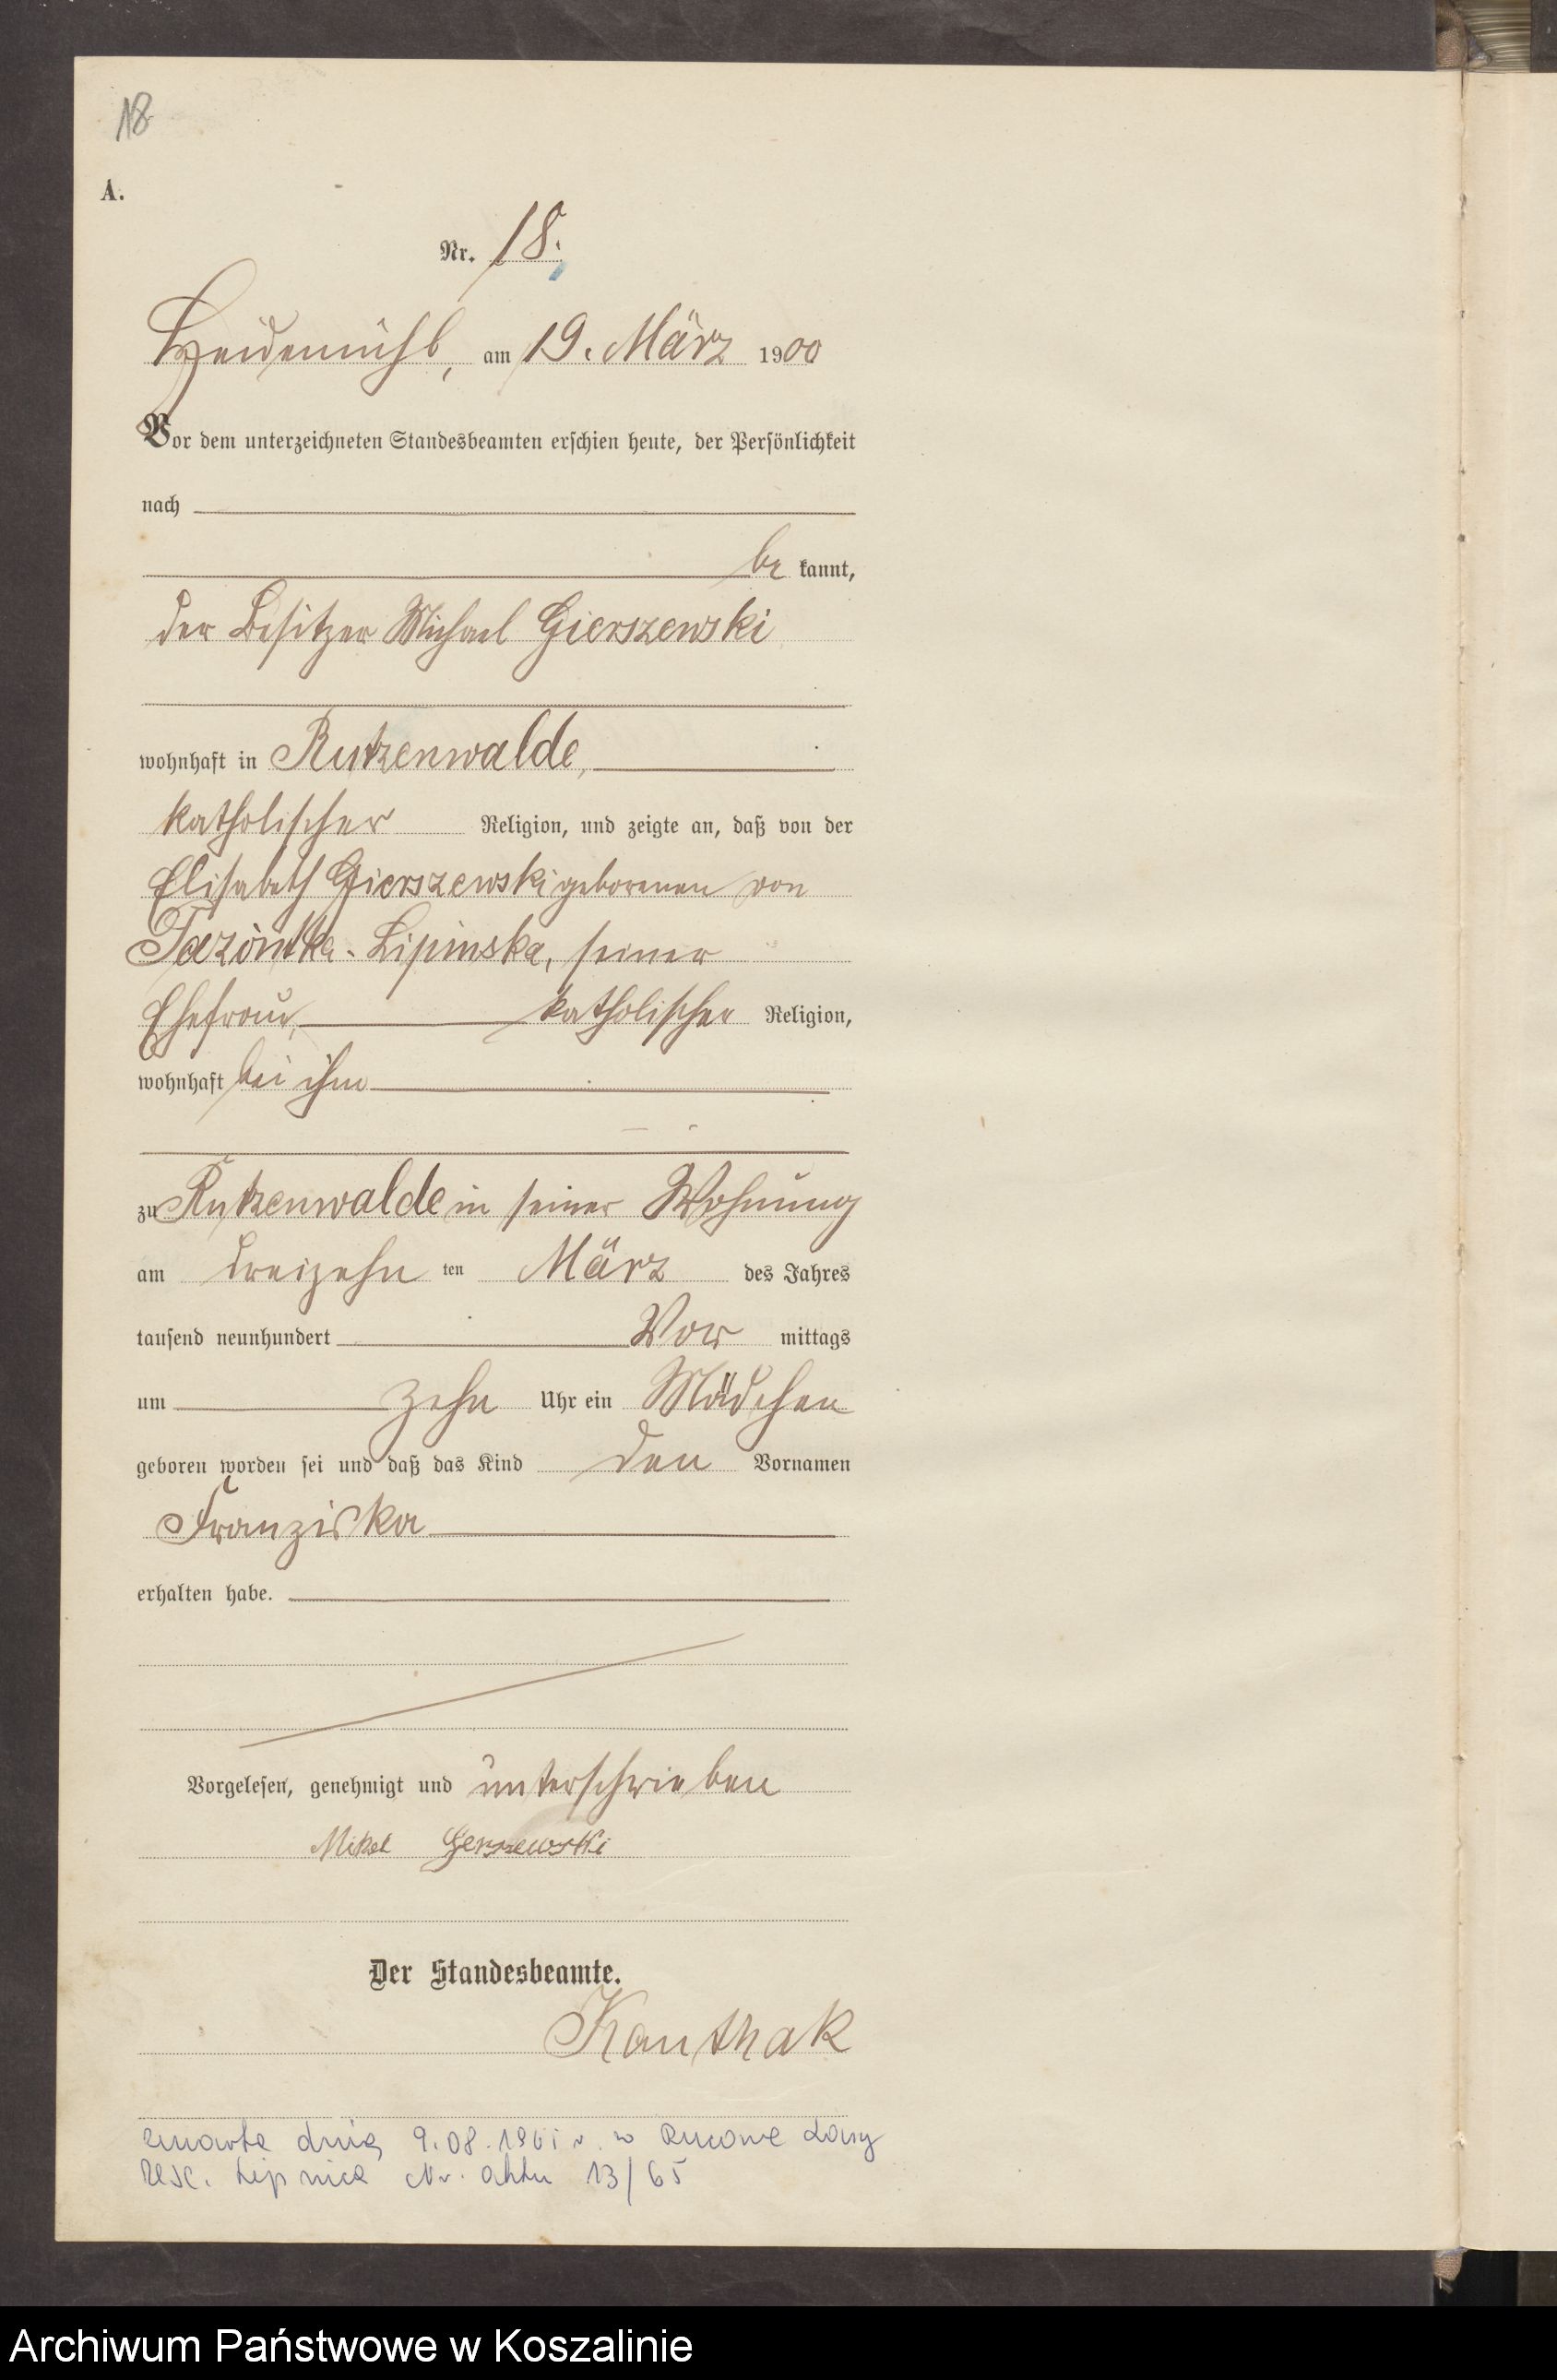 18
A.
Nr. 18.
Heidemühl, am 19. März 1900
Vor dem unterzeichneten Standesbeamten erschien heute, der Persönlichkeit
nach
be kannt,
der Besitzer Michael Gierszewski
wohnhaft in Rutzenwalde,
katholischer Religion, und zeigte an, daß von der
Elisabeth Gierszewski geborenen von
Jazòntka-Lipinska, seiner
Ehefrau, katholischer Religion,
wohnhaft bei ihm
zu Rutzenwalde in seiner Wohnung
am dreizehn ten März des Jahres
tausend neunhundert Vor mittags
um zehn Uhr ein Mädchen
geboren worden sei und daß das Kind den Vornamen
Franziska
erhalten habe.
Vorgelesen, genehmigt und unterschrieben
Mikel Gerszewski
Der Standesbeamte.
Kanthak
zmarła dnia 9.08. r. w Lasy
USC. Lipnica Nr. aktu 13/65
Archiwum Państwowe w Koszalinie